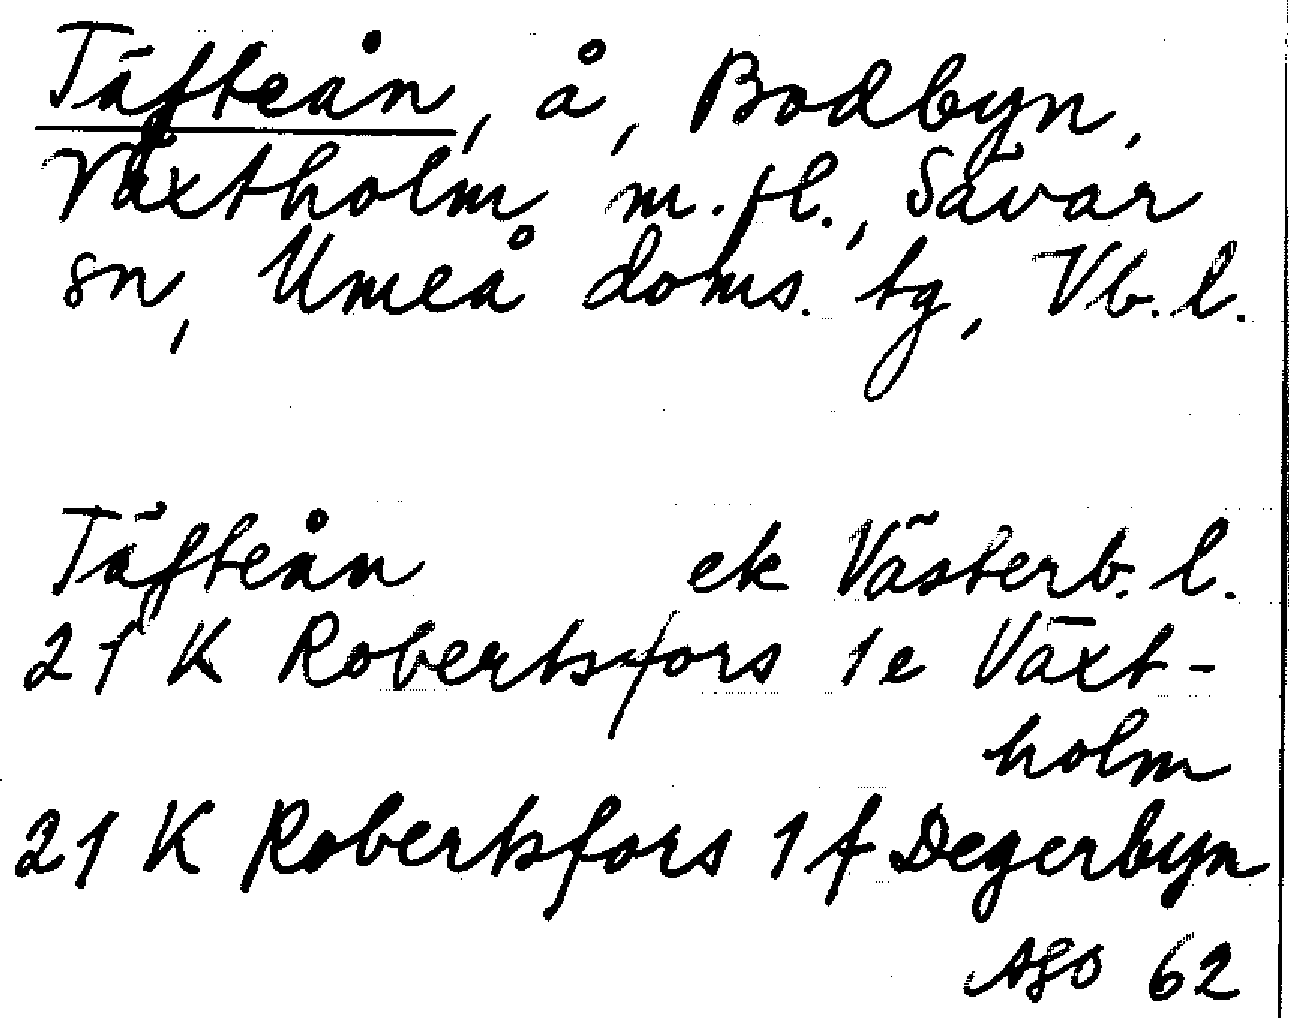 Täfteån, å, Bodbyn,
Växtholm m.fl., Sävar
sn, Umeå doms. tg, Vb.l.
Täfteån ek Västerb. l.
21 K Robertsfors 1e Växt-
holm
21 K Robertsfors 1f Degerbyn
AGO 62